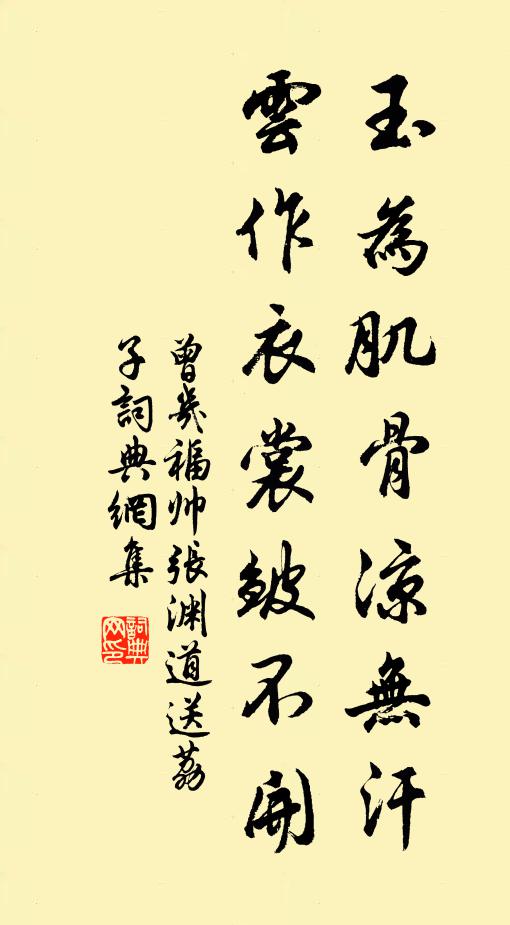 玉為肌骨涼無汗
雲作衣裳皺不開
曾幾福帅張渊道送荔
子詞典網集
詞典
网印